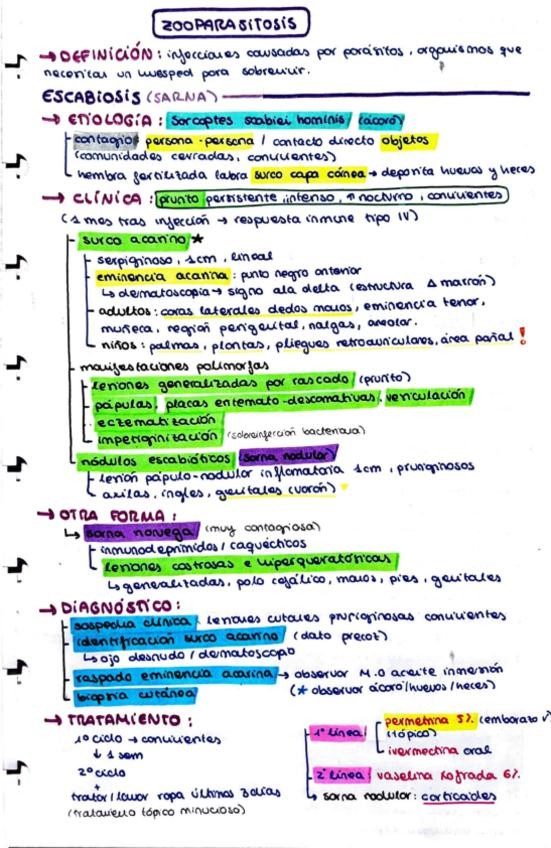 ZOOPARASITOSIS
→ DEFINICIÓN: infecciones causadas por parásitos, organismos que
necesitan un huésped para sobrevivir.
ESCABIOSIS (SARNA)
→ ETIOLOGÍA: Sarcoptes scabiei hominis (ácaro)
contagio persona-persona / contacto directo objetos
(comunidades cerradas, convivientes)
hembra fertilizada labra surco capa córnea → deposita huevos y heces
→ CLÍNICA: prurito persistente, intenso, ↑ nocturno, convivientes
(1 mes tras infección → respuesta inmune tipo IV)
surco acarino ★
serpiginoso, 1cm, lineal
eminencia acarina: punto negro anterior
↳ dermatoscopia → signo ala delta (estructura Δ marrón)
adultos: caras laterales dedos manos, eminencia tenar,
muñeca, región perigenital, nalgas, areolar.
niños: palmas, plantas, pliegues retroauriculares, área pañal !
manifestaciones polimorfas
lesiones generalizadas por rascado (prurito)
pápulas, placas eritemato-descamativas, vesiculación
eczematización
impetiginización (sobreinfección bacteriana)
nódulos escabióticos (sarna nodular)
lesión pápulo-nodular inflamatoria 1cm, pruriginosos
axilas, ingles, genitales (varón)
→ OTRA FORMA:
↳ sarna noruega (muy contagiosa)
inmunodeprimidos / caquécticos
lesiones costrosas e hiperqueratósicas
↳ generalizadas, polo cefálico, manos, pies, genitales
→ DIAGNÓSTICO:
sospecha clínica: lesiones cutáneas pruriginosas convivientes
identificación surco acarino (dato precoz)
↳ ojo desnudo / dermatoscopio
raspado eminencia acarina → observar M.O aceite inmersión
biopsia cutánea (* observar ácaro/huevos/heces)
→ TRATAMIENTO:
1º ciclo → convivientes
↓ 1 sem
2º ciclo
+
tratar/lavar ropa últimos 3 días
(tratamiento tópico minucioso)
1ª línea permetrina 5% (embarazo ✓)
(tópico)
ivermectina oral
2ª línea: vaselina azufrada 6%
↳ sarna nodular: corticoides